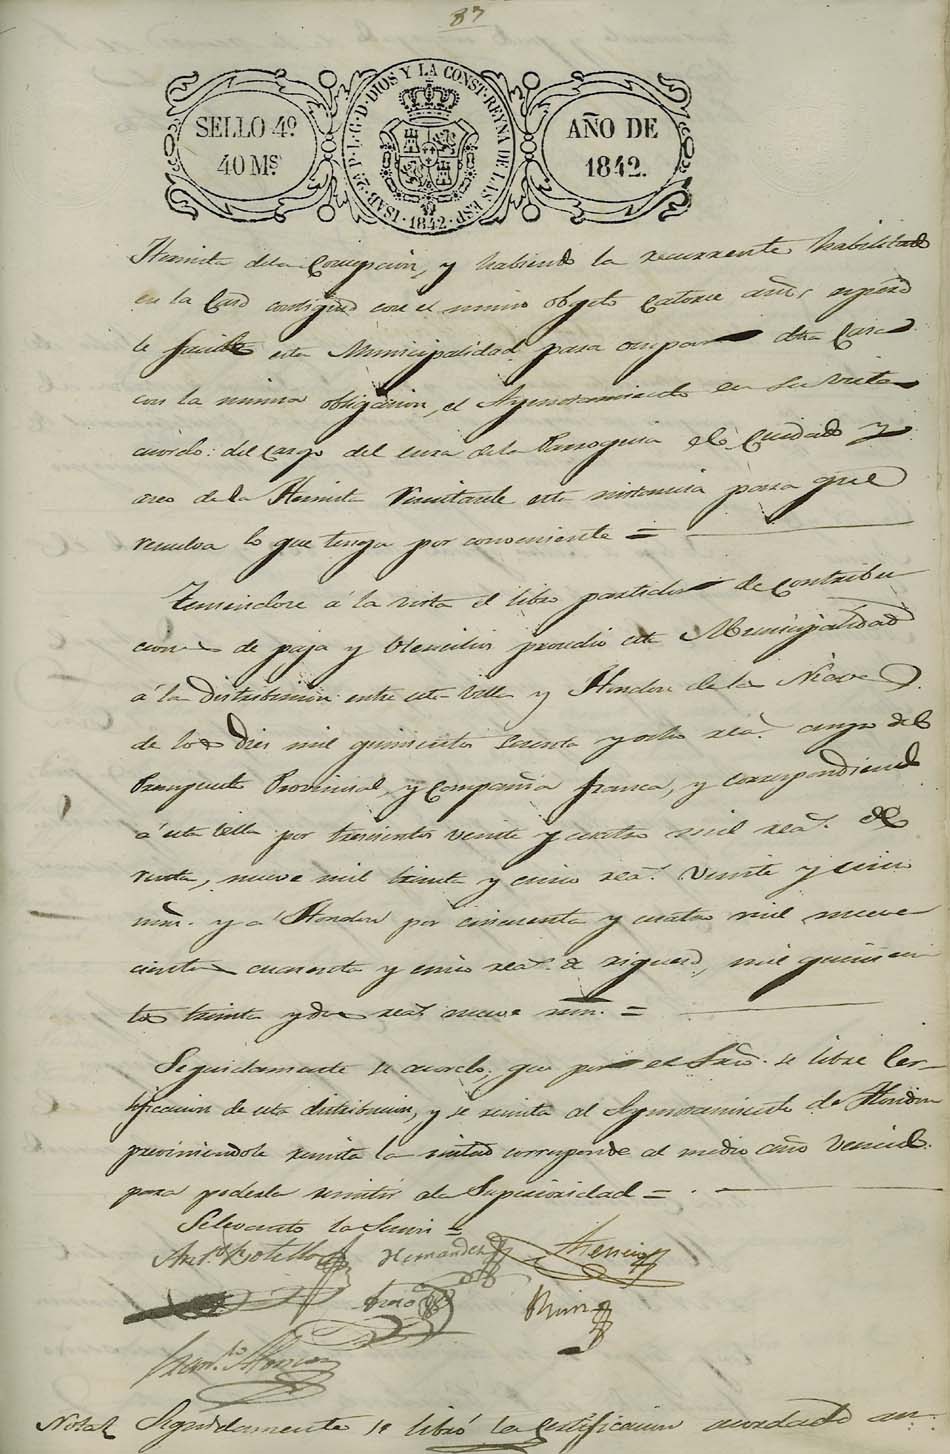 87
SELLO 4º
40 Ms
ISAB. 2ª P. L. G. D. DIOS Y LA CONST. REYNA DE LAS ESP. 1842
AÑO DE
1842.
Hermita dela Concepcion, y habiendo la recurrente habilitado
en la Casa contigua con el mismo objeto Catorce años
le facilite esta Municipalidad para ocupar dha Casa
con la misma obligacion, el Ayuntamiento en su vista
acordo: del cargo del cura dela Parroquia el Cuidado y
aseo de la Hermita Remitasele esta instancia para que
resuelva lo que tenga por conveniente =
Teniendose á la vista el libro de contribu
ciones de paja y Utensilios procedio esta Municipalidad
á la distribucion entre esta Villa y Hondon de las Nieves
de los Dies mil quinientos sesenta y ocho rea.s cargo del
Presupuesto Provincial y Compañia franca, y correspondiendo
á esta Villa por trescientos veinte y cuatro mil rea.s de
renta, nueve mil treinta y cinco rea.s veinte y cinco
mrs. y a Hondon por cincuenta y cuatro mil nueve
cientos cuarenta y cinco rea.s de riqueza, mil quinien
tos treinta y dos rea.s nueve mrs. =
Seguidamente se acordo; que por el Srio. se libre Cer-
tificacion de esta distribucion, y se remita al Ayuntamiento de Hondon
previniendole remita la mitad corresponde al medio año Vencido
para poderla remitir ala Superioridad =
Se levanto la Sesion =
Ant.º Botella Hernandez Asencio
Mira
Nota Seguidamente se libró la Certificacion acordada